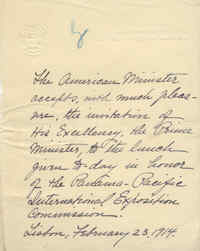 The American Minister
accepts, with much pleas-
ure, the invitation of
His Excellency, the Prime
Minister, to the lunch
given to-day in honor
of the Panama-Pacific
International Exposition
Commission.
Lisbon, February 23, 1914.